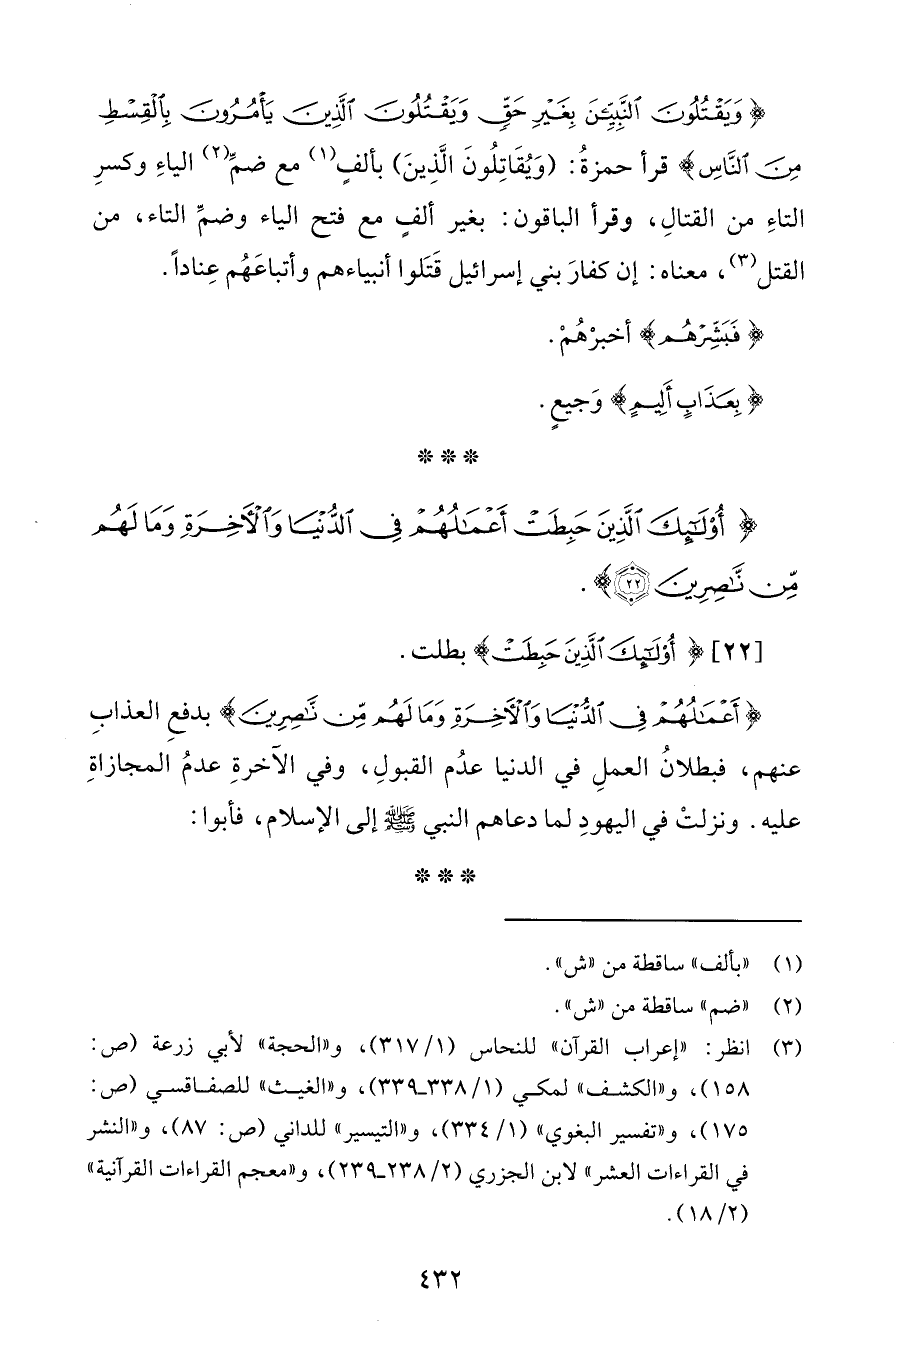 ﴿ وَيَقْتُلُونَ ٱلنَّبِيِّـۧنَ بِغَيْرِ حَقٍّ وَيَقْتُلُونَ ٱلَّذِينَ يَأْمُرُونَ بِٱلْقِسْطِ
مِنَ ٱلنَّاسِ ﴾ قرأ حمزةُ: (وَيُقَاتِلُونَ الَّذِينَ) بألفٍ(١) مع ضمِّ(٢) الياءِ وكسرِ
التاءِ من القتالِ، وقرأ الباقون: بغير ألفٍ مع فتح الياء وضمِّ التاء، من
القتل(٣)، معناه: إن كفارَ بني إسرائيل قَتَلوا أنبياءهم وأتباعَهُم عِناداً.
﴿ فَبَشِّرْهُم ﴾ أخبرْهُمْ.
﴿ بِعَذَابٍ أَلِيمٍ ﴾ وَجيعٍ.
* * *
﴿ أُوْلَٰٓئِكَ ٱلَّذِينَ حَبِطَتْ أَعْمَٰلُهُمْ فِى ٱلدُّنْيَا وَٱلْأَخِرَةِ وَمَا لَهُم
مِّن نَّٰصِرِينَ ٢٢ ﴾.
[٢٢] ﴿ أُوْلَٰٓئِكَ ٱلَّذِينَ حَبِطَتْ ﴾ بطلت.
﴿ أَعْمَٰلُهُمْ فِى ٱلدُّنْيَا وَٱلْأَخِرَةِ وَمَا لَهُم مِّن نَّٰصِرِينَ ﴾ بدفعِ العذابِ
عنهم، فبطلانُ العملِ في الدنيا عدمُ القبولِ، وفي الآخرةِ عدمُ المجازاةِ
عليه. ونزلتْ في اليهودِ لما دعاهم النبي ﷺ إلى الإسلام، فأبوا:
* * *
(١) «بألف» ساقطة من «ش».
(٢) «ضم» ساقطة من «ش».
(٣) انظر: «إعراب القرآن» للنحاس (١/ ٣١٧)، و«الحجة» لأبي زرعة (ص:
١٥٨)، و«الكشف» لمكي (١/ ٣٣٨ـ٣٣٩)، و«الغيث» للصفاقسي (ص:
١٧٥)، و«تفسير البغوي» (١/ ٣٣٤)، و«التيسير» للداني (ص: ٨٧)، و«النشر
في القراءات العشر» لابن الجزري (٢/ ٢٣٨ـ٢٣٩)، و«معجم القراءات القرآنية»
(٢/ ١٨).
٤٣٢